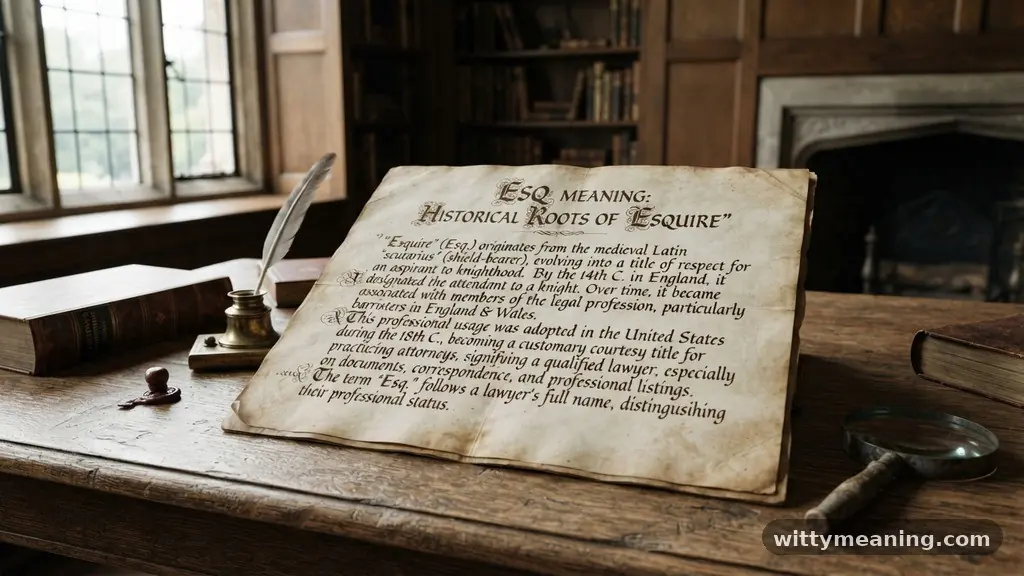 ESQ MEANING:
HISTORICAL ROOTS OF ESQUIRE"
"Esquire" (Esq.) originates from the medieval Latin
"scutarius" (shield-bearer), evolving into a title of respect for
an aspirant to knighthood. By the 14th C. in England, it
designated the attendant to a knight. Over time, it became
associated with members of the legal profession, particularly
barristers in England & Wales.
This professional usage was adopted in the United States
during the 18th C., becoming a customary courtesy title for
practicing attorneys, signifying a qualified lawyer, especially
on documents, correspondence, and professional listings.
The term "Esq." follows a lawyer's full name, distingusihing
their professional status.
wittymeaning.com